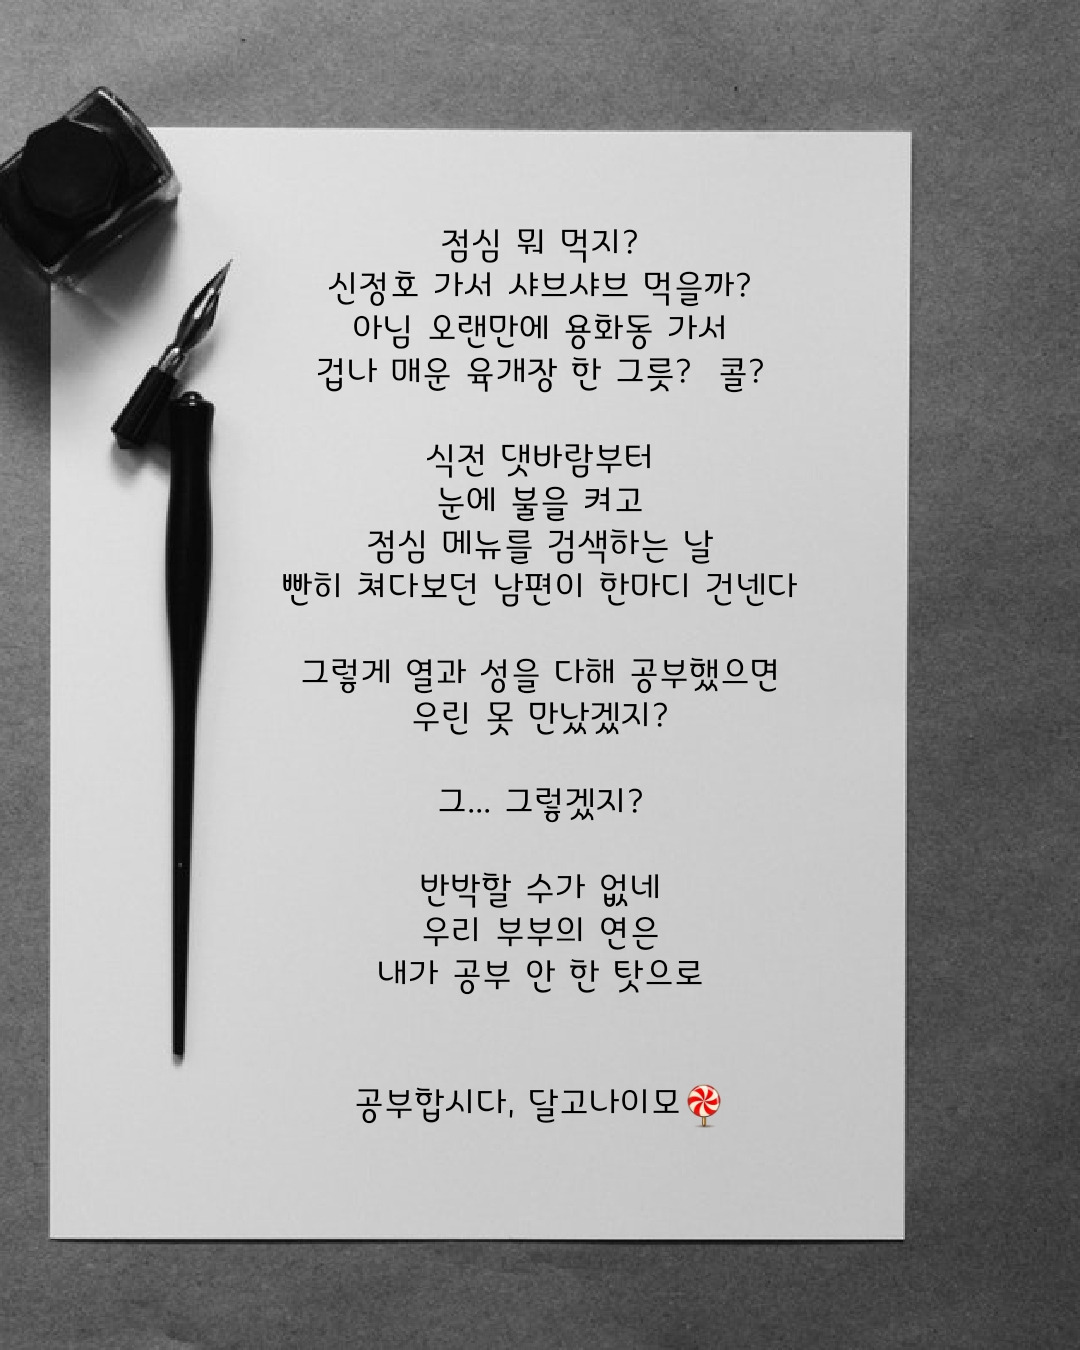 점심 뭐 먹지?
신정호 가서 샤브샤브 먹을까?
아님 오랜만에 용화동 가서
겁나 매운 육개장 한 그릇? 콜?
식전 댓바람부터
눈에 불을 켜고
점심 메뉴를 검색하는 날
빤히 쳐다보던 남편이 한마디 건넨다
그렇게 열과 성을 다해 공부했으면
우린 못 만났겠지?
그... 그렇겠지?
반박할 수가 없네
우리 부부의 연은
내가 공부 안 한 탓으로
공부합시다, 달고나이모🍭